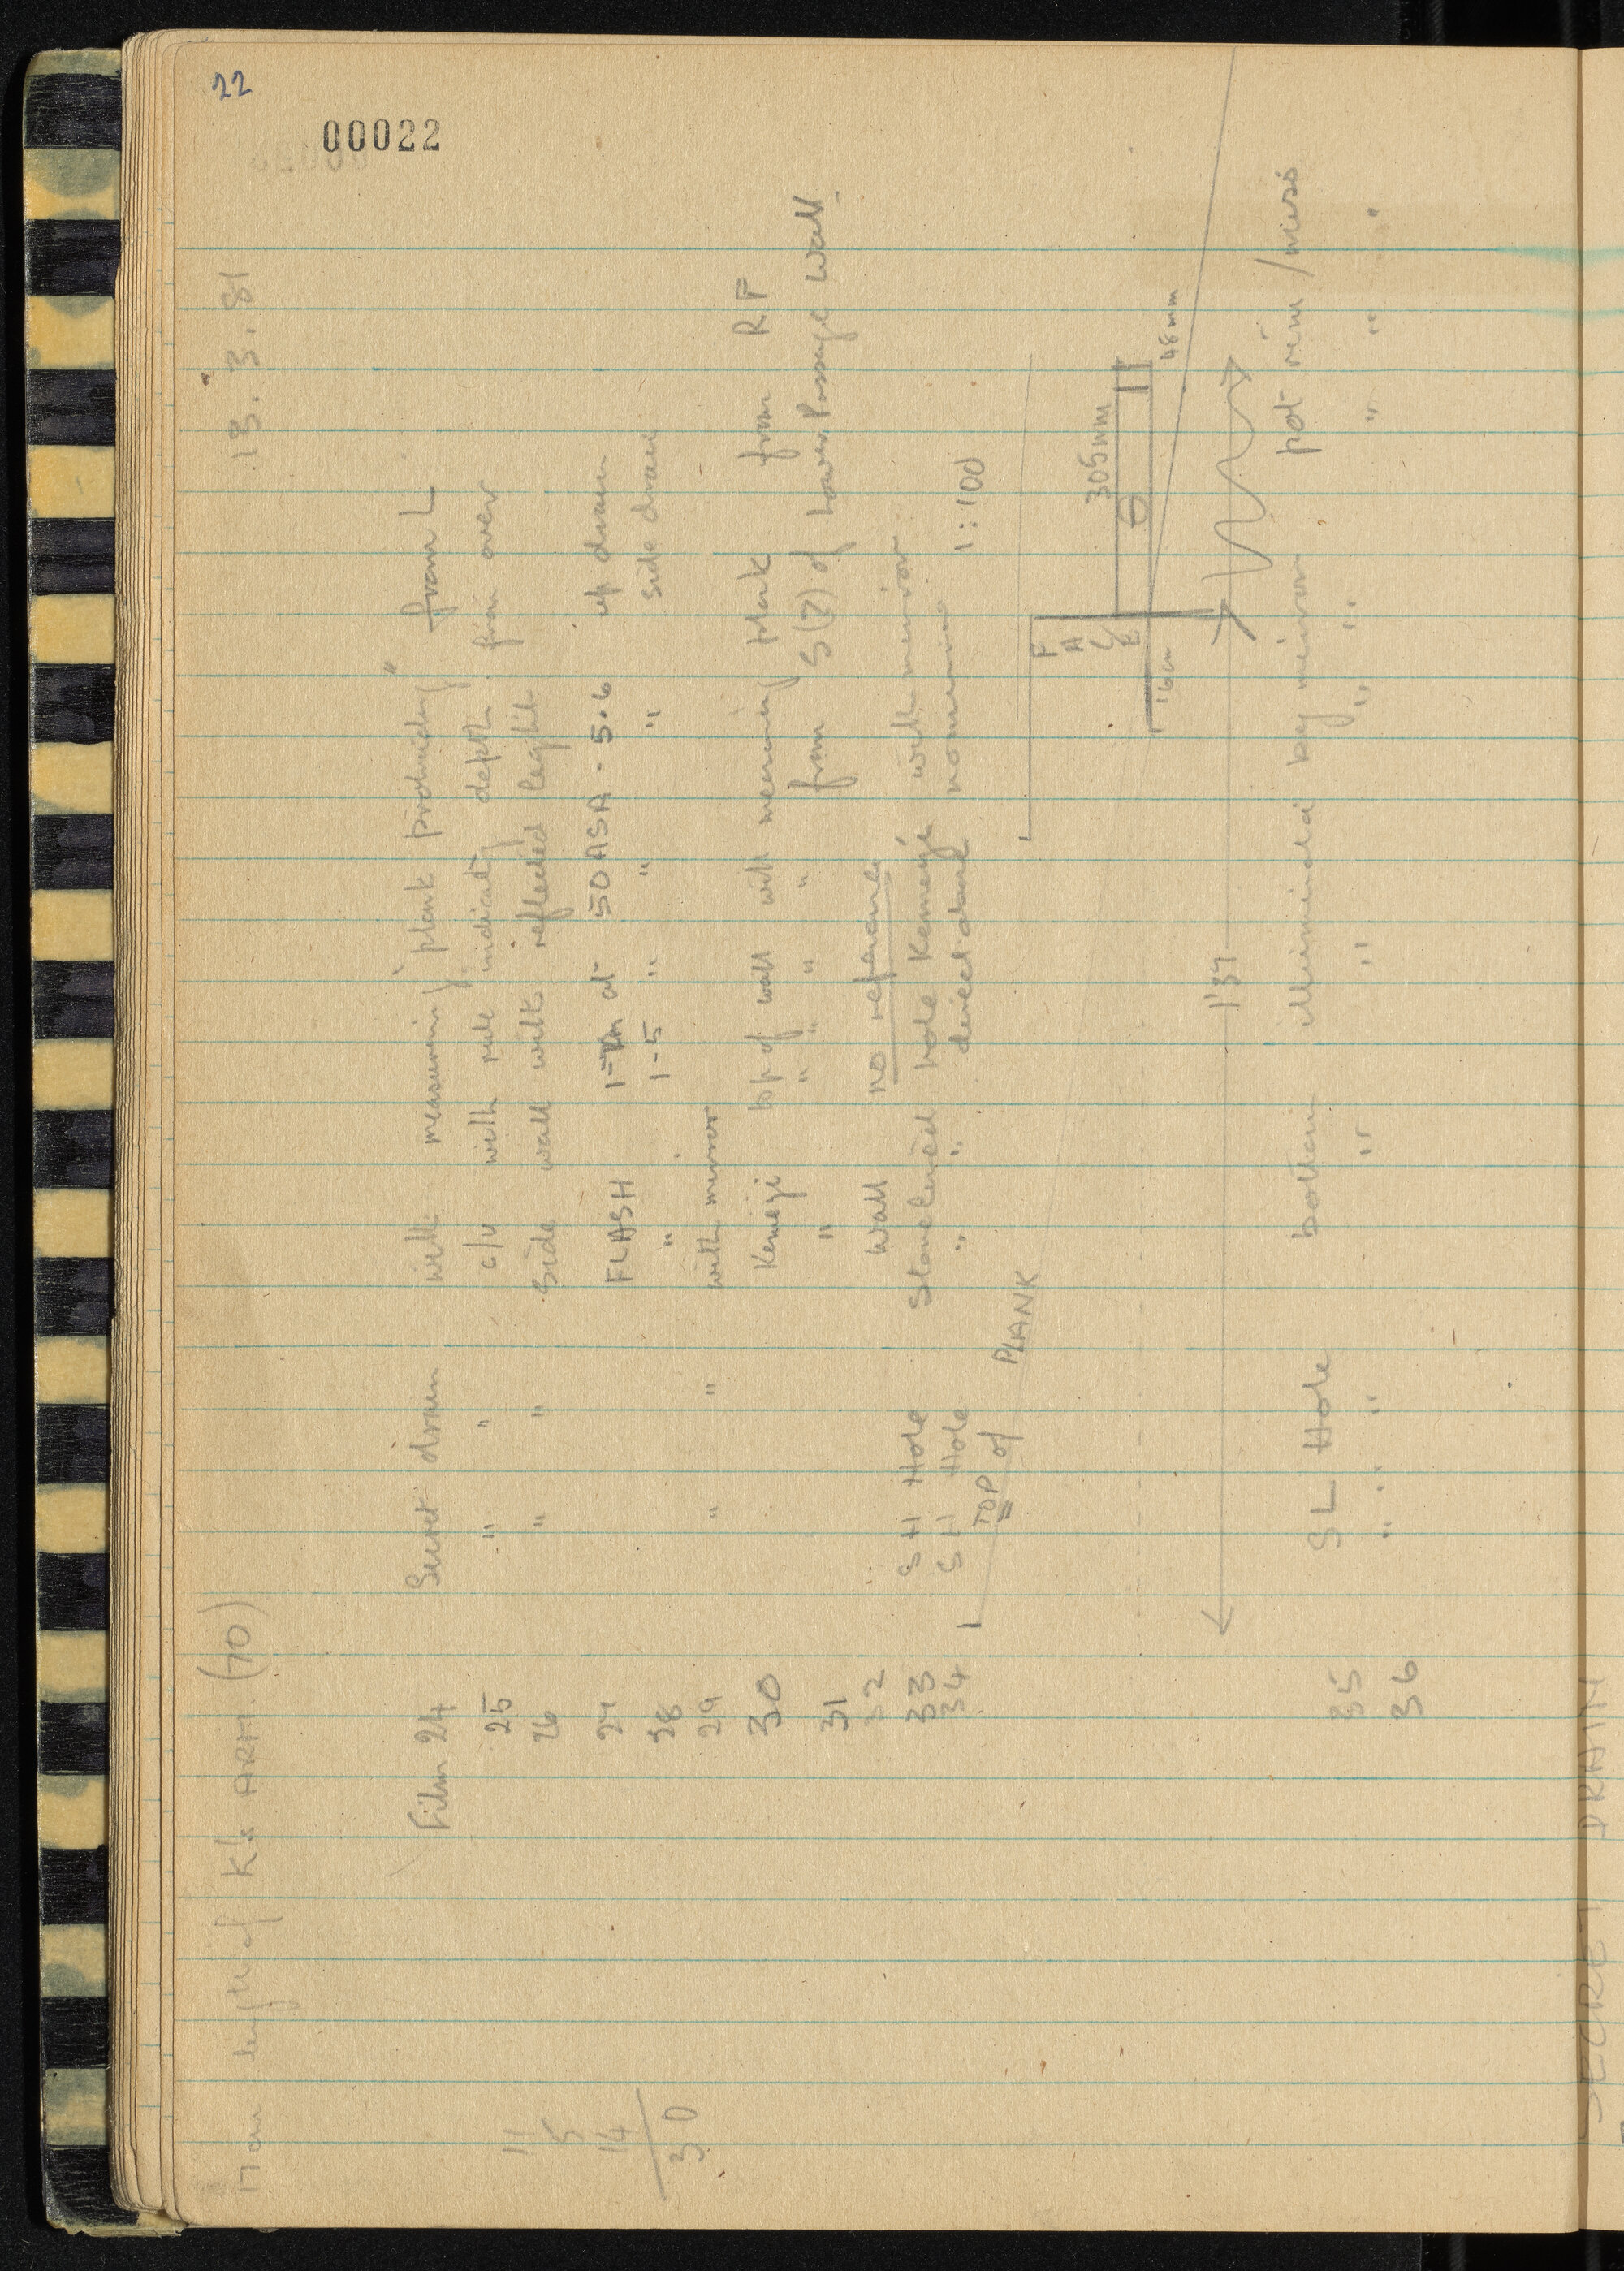 22
00022
17 cm length of K's ARM (70)
13. 3. 81
Film 24 Secret drain with measuring "plank protruding" from L
25 " " c/u with rule indicating depth from over
26 " " Side wall with reflected light
27 FLASH at 50 ASA - 5.6 up drain
28 " 1-5 " " " side drain
29 " " with mirror
30 Kemeji top of wall with measuring plank from RF
31 " " " " " from S(?) of Lower Passage Wall
32 Wall no reference
33 S H Hole Stonelined hole Kemeje with mirror
34 S H Hole " " direct above no mirror
TOP of PLANK
1:100
FACE
305mm
48mm
16cm
1'39
35 S L Hole bottom illuminated by mirror pot rim /
36 " " " " " " " " " "
11
5
14
30
SECRET DRAIN